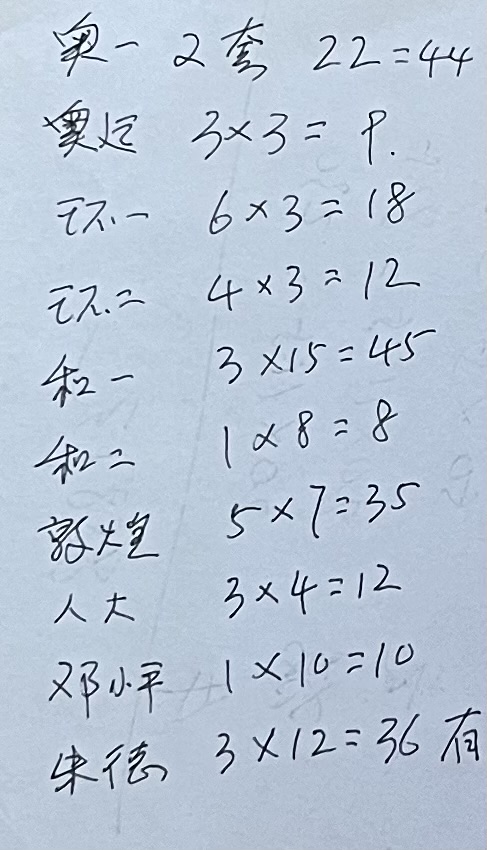 奥一 2套 22=44
奥运 3×3=9.
环一 6×3=18
环二 4×3=12
和一 3×15=45
和二 1×8=8
敦煌 5×7=35
人大 3×4=12
邓小平 1×10=10
朱德 3×12=36 有